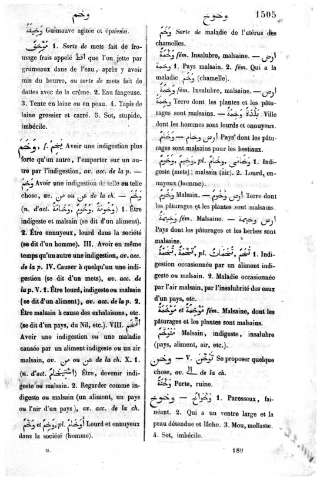 وخم
وخوخ 1505
وَخِيفَة Guimauve agitée et épaissie.
1. Sorte de mets fait de fromage frais appelé اقط que l'on jette par
grumeaux dans de l'eau, après y avoir
mis du beurre, ou sorte de mets fait de
dattes avec de la crème. 2. Eau fangeuse.
3. Tente en laine ou en peau. 4. Tapis de
laine grossier et carré. 5. Sot, stupide,
imbécile.
وَخَمَ f. يَخِمُ Avoir une indigestion plus
forte qu'un autre, l'emporter sur un autre
par l'indigestion, av. acc. de la p.
وَخِمَ Avoir une indigestion de telle ou telle
chose, av. من ou عن de la ch. — وَخُمَ
(n. d'act. وَخَامَة, وُخُومَة, وُخُوم) 1. Être
indigeste et malsain (d'un aliment).
2. Être ennuyeux, lourd dans la société
(se dit d'un homme). III. Avoir en même
temps qu'un autre une indigestion, av. acc.
de la p. IV. Causer à quelqu'un une indigestion
(se dit d'un mets), av. acc. de
la p. V. 1. Être lourd, indigeste et malsain
(se dit d'un aliment), av. acc. de la p. 2.
Être malsain à cause des exhalaisons, etc.
(se dit d'un pays, du Nil, etc.). VIII.
Avoir une indigestion ou une maladie
causée par un aliment indigeste ou un air
malsain, av. من ou عن de la ch. X. 1.
(n. d'act. اِسْتِيخَام) Être, devenir indigeste
ou malsain. 2. Regarder comme indigeste
ou malsain (un aliment, un pays
ou l'air d'un pays), av. acc. de la ch.
وَخْم et وَخِم pl. Lourd et ennuyeux
dans la société (homme).
II.
وَخَم Sorte de maladie de l'utérus des
chamelles.
— أرض fém. Insalubre, malsaine.
وَخِمَة fém. 1. Pays malsain. 2. Qui a la
maladie وَخَم (chamelle).
— أرض Terre dont les plantes et les pâturages
sont malsains. بَلْدَة وَخِمَة Ville
dont les hommes sont lourds et ennuyeux.
أرض وَخَام — Pays dont les pâturages
sont malsains pour les bestiaux.
وَخِيم pl. 1. Indigeste
(mets); malsain (air). 2. Lourd, ennuyeux
(homme).
وَخُوم Malsaine. — أرض Terre dont
les pâturages et les plantes sont malsains.
وَخِيمَة fém. Malsaine. — أرض
Pays dont les pâturages et les herbes sont
malsains.
تُخَمَة, تُخْمَة pl. تُخَم, تُخَمَات 1. Indigestion
occasionnée par un aliment indigeste
ou malsain. 2. Maladie occasionnée
par l'air malsain, par l'insalubrité des eaux
d'un pays, etc.
مُوخِمَة et fém. Malsaine, dont les
pâturages et les plantes sont malsains.
مَتْخَمَة Malsain, indigeste, insalubre
(pays, aliment, air, etc.).
وَخَنَ — V. تَوَخَّنَ Se proposer quelque
chose, av. acc. de la ch.
وَخْنَة Perte, ruine.
وَخْوَخ — وَخْوَاخ 1. Paresseux, fainéant.
2. Qui a un ventre large et la
peau détendue et lâche. 3. Mou, mollasse.
4. Sot, imbécile.
189